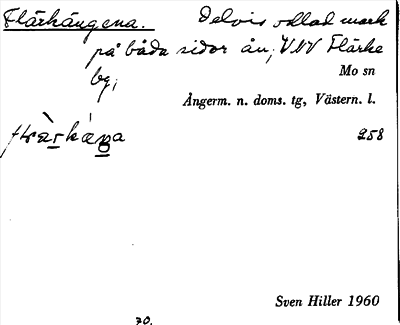 Flärkängena. Delvis odlad mark
på båda sidor ån, VNV Flärke
by,
Mo sn
Ångerm. n. doms. tg, Västern. l.
258
Sven Hiller 1960
30.